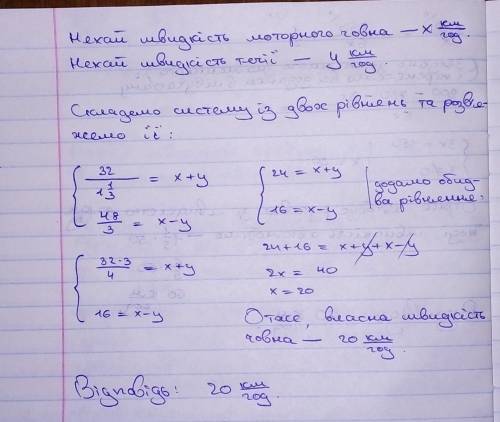 Нехай швидкість моторного човна — x км/год.
Нехай швидкість течії — y км/год.
Складемо систему із двох рівнень та розв'я-
жемо її:
{ 32 / 1 1/3 = x+y
48/3 = x-y
{ 32·3 / 4 = x+y
16 = x-y
{ 24 = x+y
16 = x-y
| додамо обид-
ва рівняння:
24+16 = x+y+x-y
2x = 40
x = 20
Отже, власна швидкість
човна — 20 км/год.
Відповідь: 20 км/год.